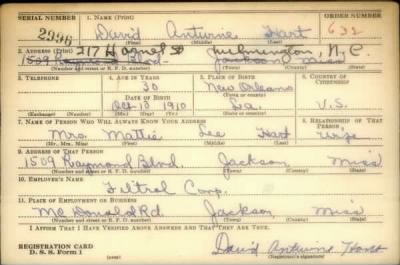 SERIAL NUMBER 1. NAME (Print) ORDER NUMBER
2996 David Antwine Hart 632
(First) (Middle) (Last)
2. ADDRESS (Print) 217 St Wilmington, N.C.
1509 Raymond Blvd. Jackson Miss
(Number and street or R. F. D. number) (Town) (County) (State)
3. TELEPHONE 4. AGE IN YEARS 5. PLACE OF BIRTH 6. COUNTRY OF CITIZENSHIP
30 New Orleans
DATE OF BIRTH (Town or county)
Oct 10 1910 La. U.S.
(Exchange) (Number) (Mo.) (Day) (Yr.) (State or country)
7. NAME OF PERSON WHO WILL ALWAYS KNOW YOUR ADDRESS 8. RELATIONSHIP OF THAT PERSON
Mrs. Mattie Lee Hart Wife
(Mr., Mrs., Miss) (First) (Middle) (Last)
9. ADDRESS OF THAT PERSON
1509 Raymond Blvd. Jackson, Miss
(Number and street or R. F. D. number) (Town) (County) (State)
10. EMPLOYER'S NAME
Filtrol Corp.
11. PLACE OF EMPLOYMENT OR BUSINESS
McDonald Rd. Jackson, Miss
(Number and street or R. F. D. number) (Town) (County) (State)
I AFFIRM THAT I HAVE VERIFIED ABOVE ANSWERS AND THAT THEY ARE TRUE.
REGISTRATION CARD
D. S. S. Form 1 (over) David Antwine Hart
(Registrant's signature)